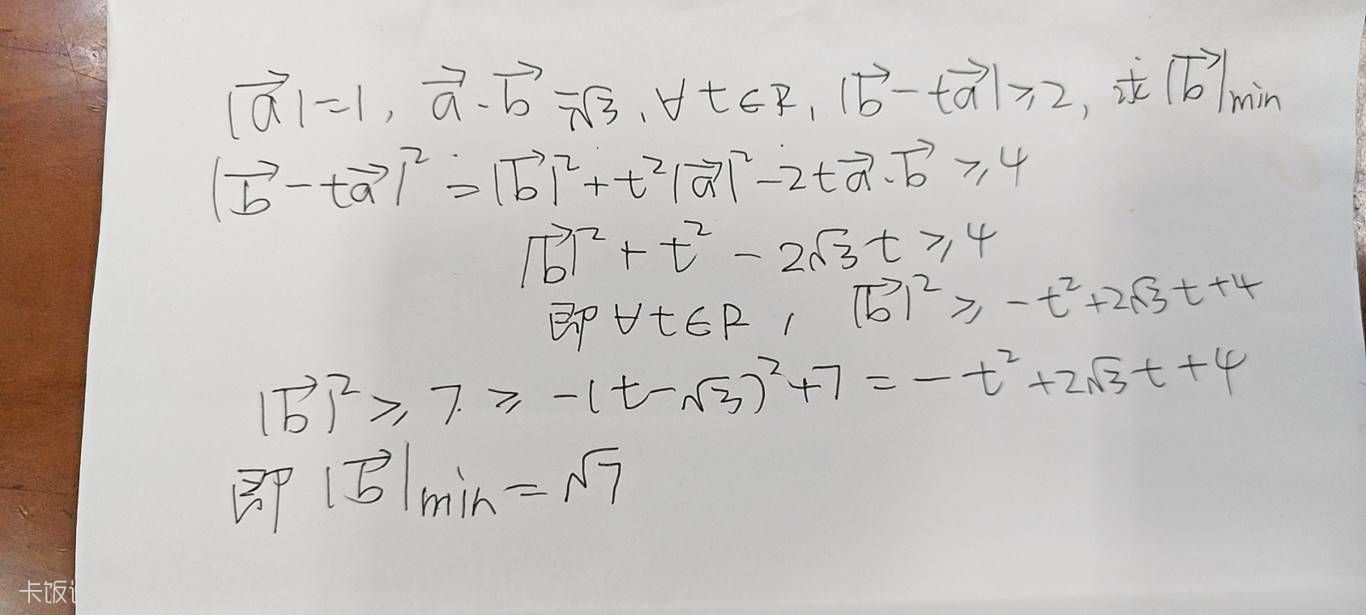 |a⃗|=1, a⃗·b⃗=√3, ∀t∈R, |b⃗-ta⃗|≥2, 求|b⃗|min
|b⃗-ta⃗|²=|b⃗|²+t²|a⃗|²-2ta⃗·b⃗≥4
|b⃗|²+t²-2√3t≥4
即∀t∈R, |b⃗|²≥-t²+2√3t+4
|b⃗|²≥7≥-(t-√3)²+7=-t²+2√3t+4
即|b⃗|min=√7
卡饭